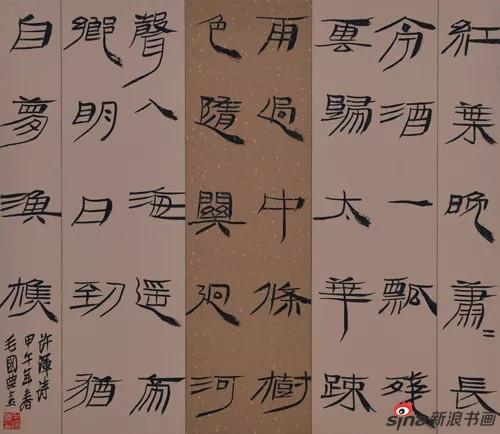 紅葉晚蕭=長
亭酒一瓢殘
雲歸太華踈
雨過中條樹
色隨關迥河
聲入海遥帝
鄉明日到猶
自夢漁樵
許渾诗
甲午年春
毛國典書
sina新浪书画